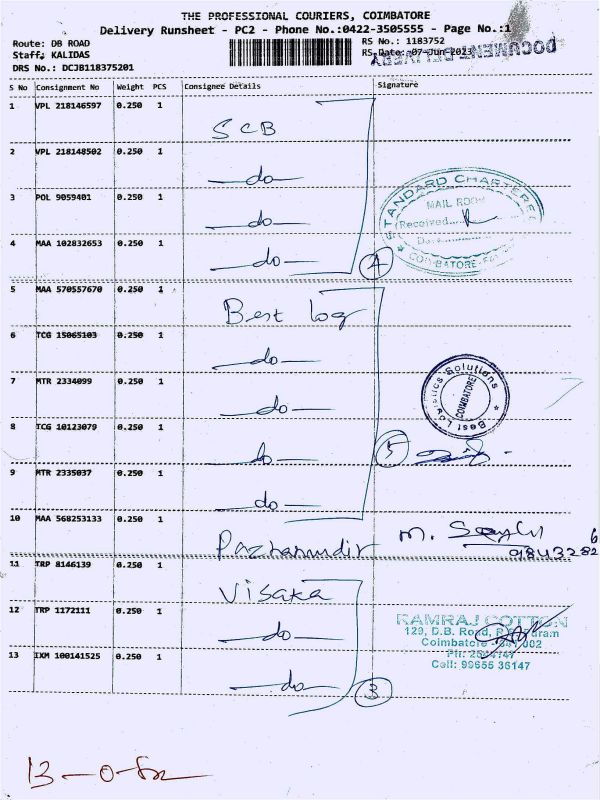 THE PROFESSIONAL COURIERS, COIMBATORE
Delivery Runsheet - PC2 - Phone No.:0422-3505555 - Page No.:1
Route: DB ROAD
RS No.: 1183752
Staff: KALIDAS
RS Date: 07-Jun-2023
DOCUMENT DELIVERY
DRS No.: DCJB118375201
S No Consignment No Weight PCS Consignee Details Signature
1 VPL 218146597 0.250 1 SCB
2 VPL 218148502 0.250 1 —do—
3 POL 9059401 0.250 1 —do—
4 MAA 102832653 0.250 1 —do— 4
STANDARD CHARTERED
MAIL ROOM
Received
Date
COIMBATORE
5 MAA 570557670 0.250 1 Best log
6 TCG 15065103 0.250 1 —do—
7 MTR 2334099 0.250 1 —do—
8 TCG 10123079 0.250 1 —do— 5
9 MTR 2335037 0.250 1 —do—
Best Logistics Solutions
COIMBATORE
10 MAA 568253133 0.250 1 Pazhamudir M.
11 TRP 8146139 0.250 1 Visaka
12 TRP 1172111 0.250 1 —do—
13 IXM 100141525 0.250 1 —do— 3
RAMRAJ COTTON
129, D.B. Road,
Coimbatore
Cell: 99655 36147
13 - 0 -